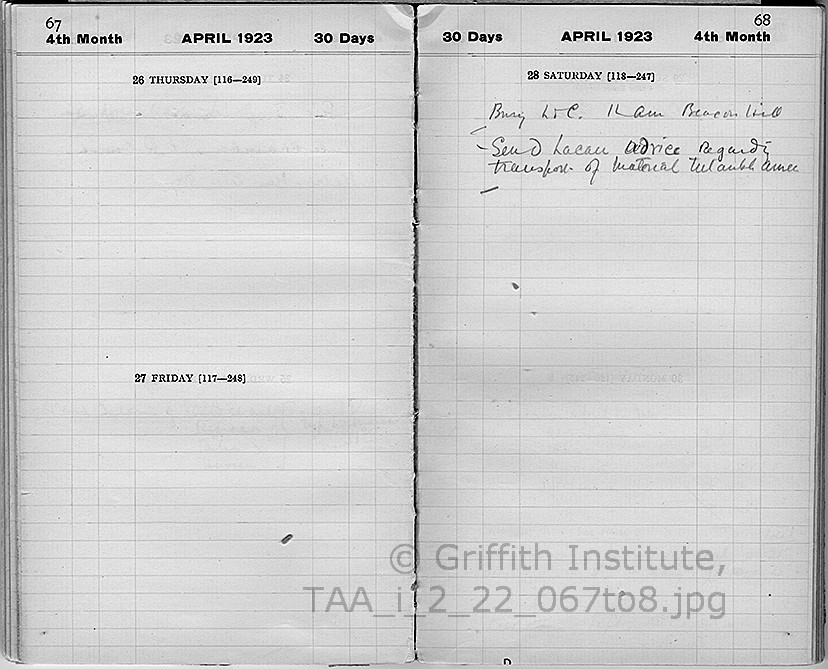 67
4th Month APRIL 1923 30 Days
26 THURSDAY [116—249]
27 FRIDAY [117—248]
68
30 Days APRIL 1923 4th Month
28 SATURDAY [118—247]
Bury Ld C. 11 am Beacon Hill
Send Lacau advice regardg
transport of material Tutankhamen
© Griffith Institute,
TAA_i_2_22_067to8.jpg